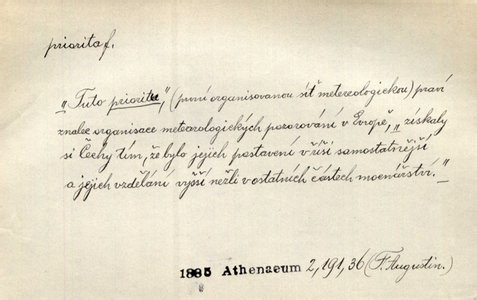 priorita f.
„Tuto prioritu,“ (první organisovanou síť metereologickou) praví
znalec organisace meteorologických pozorování v Evropě, „získaly
si Čechy tím, že bylo jejich postavení v říši samostatnější
a jejich vzdělání vyšší nežli v ostatních částech mocnářství.“
1885 Athenaeum 2, 191, 36 (F. Augustin.)